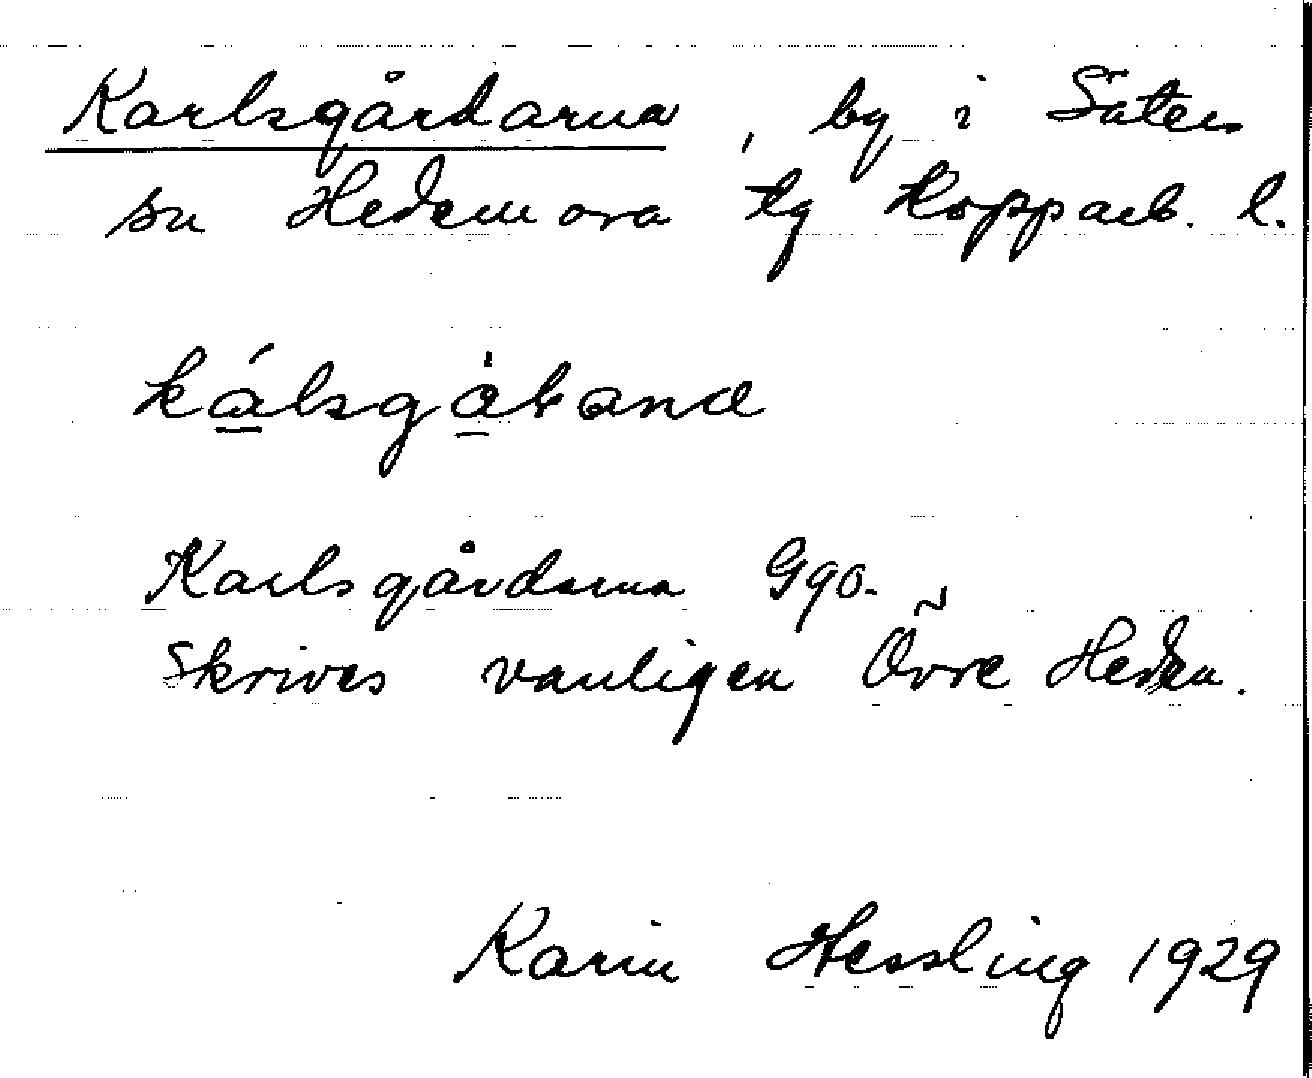 Karlsgårdarna, by i Säters
sn Hedemora tg Kopparb. l.
Karlsgårdarna Ggo.
Skrives vanligen Övre Heden.
Karin Hessling 1929